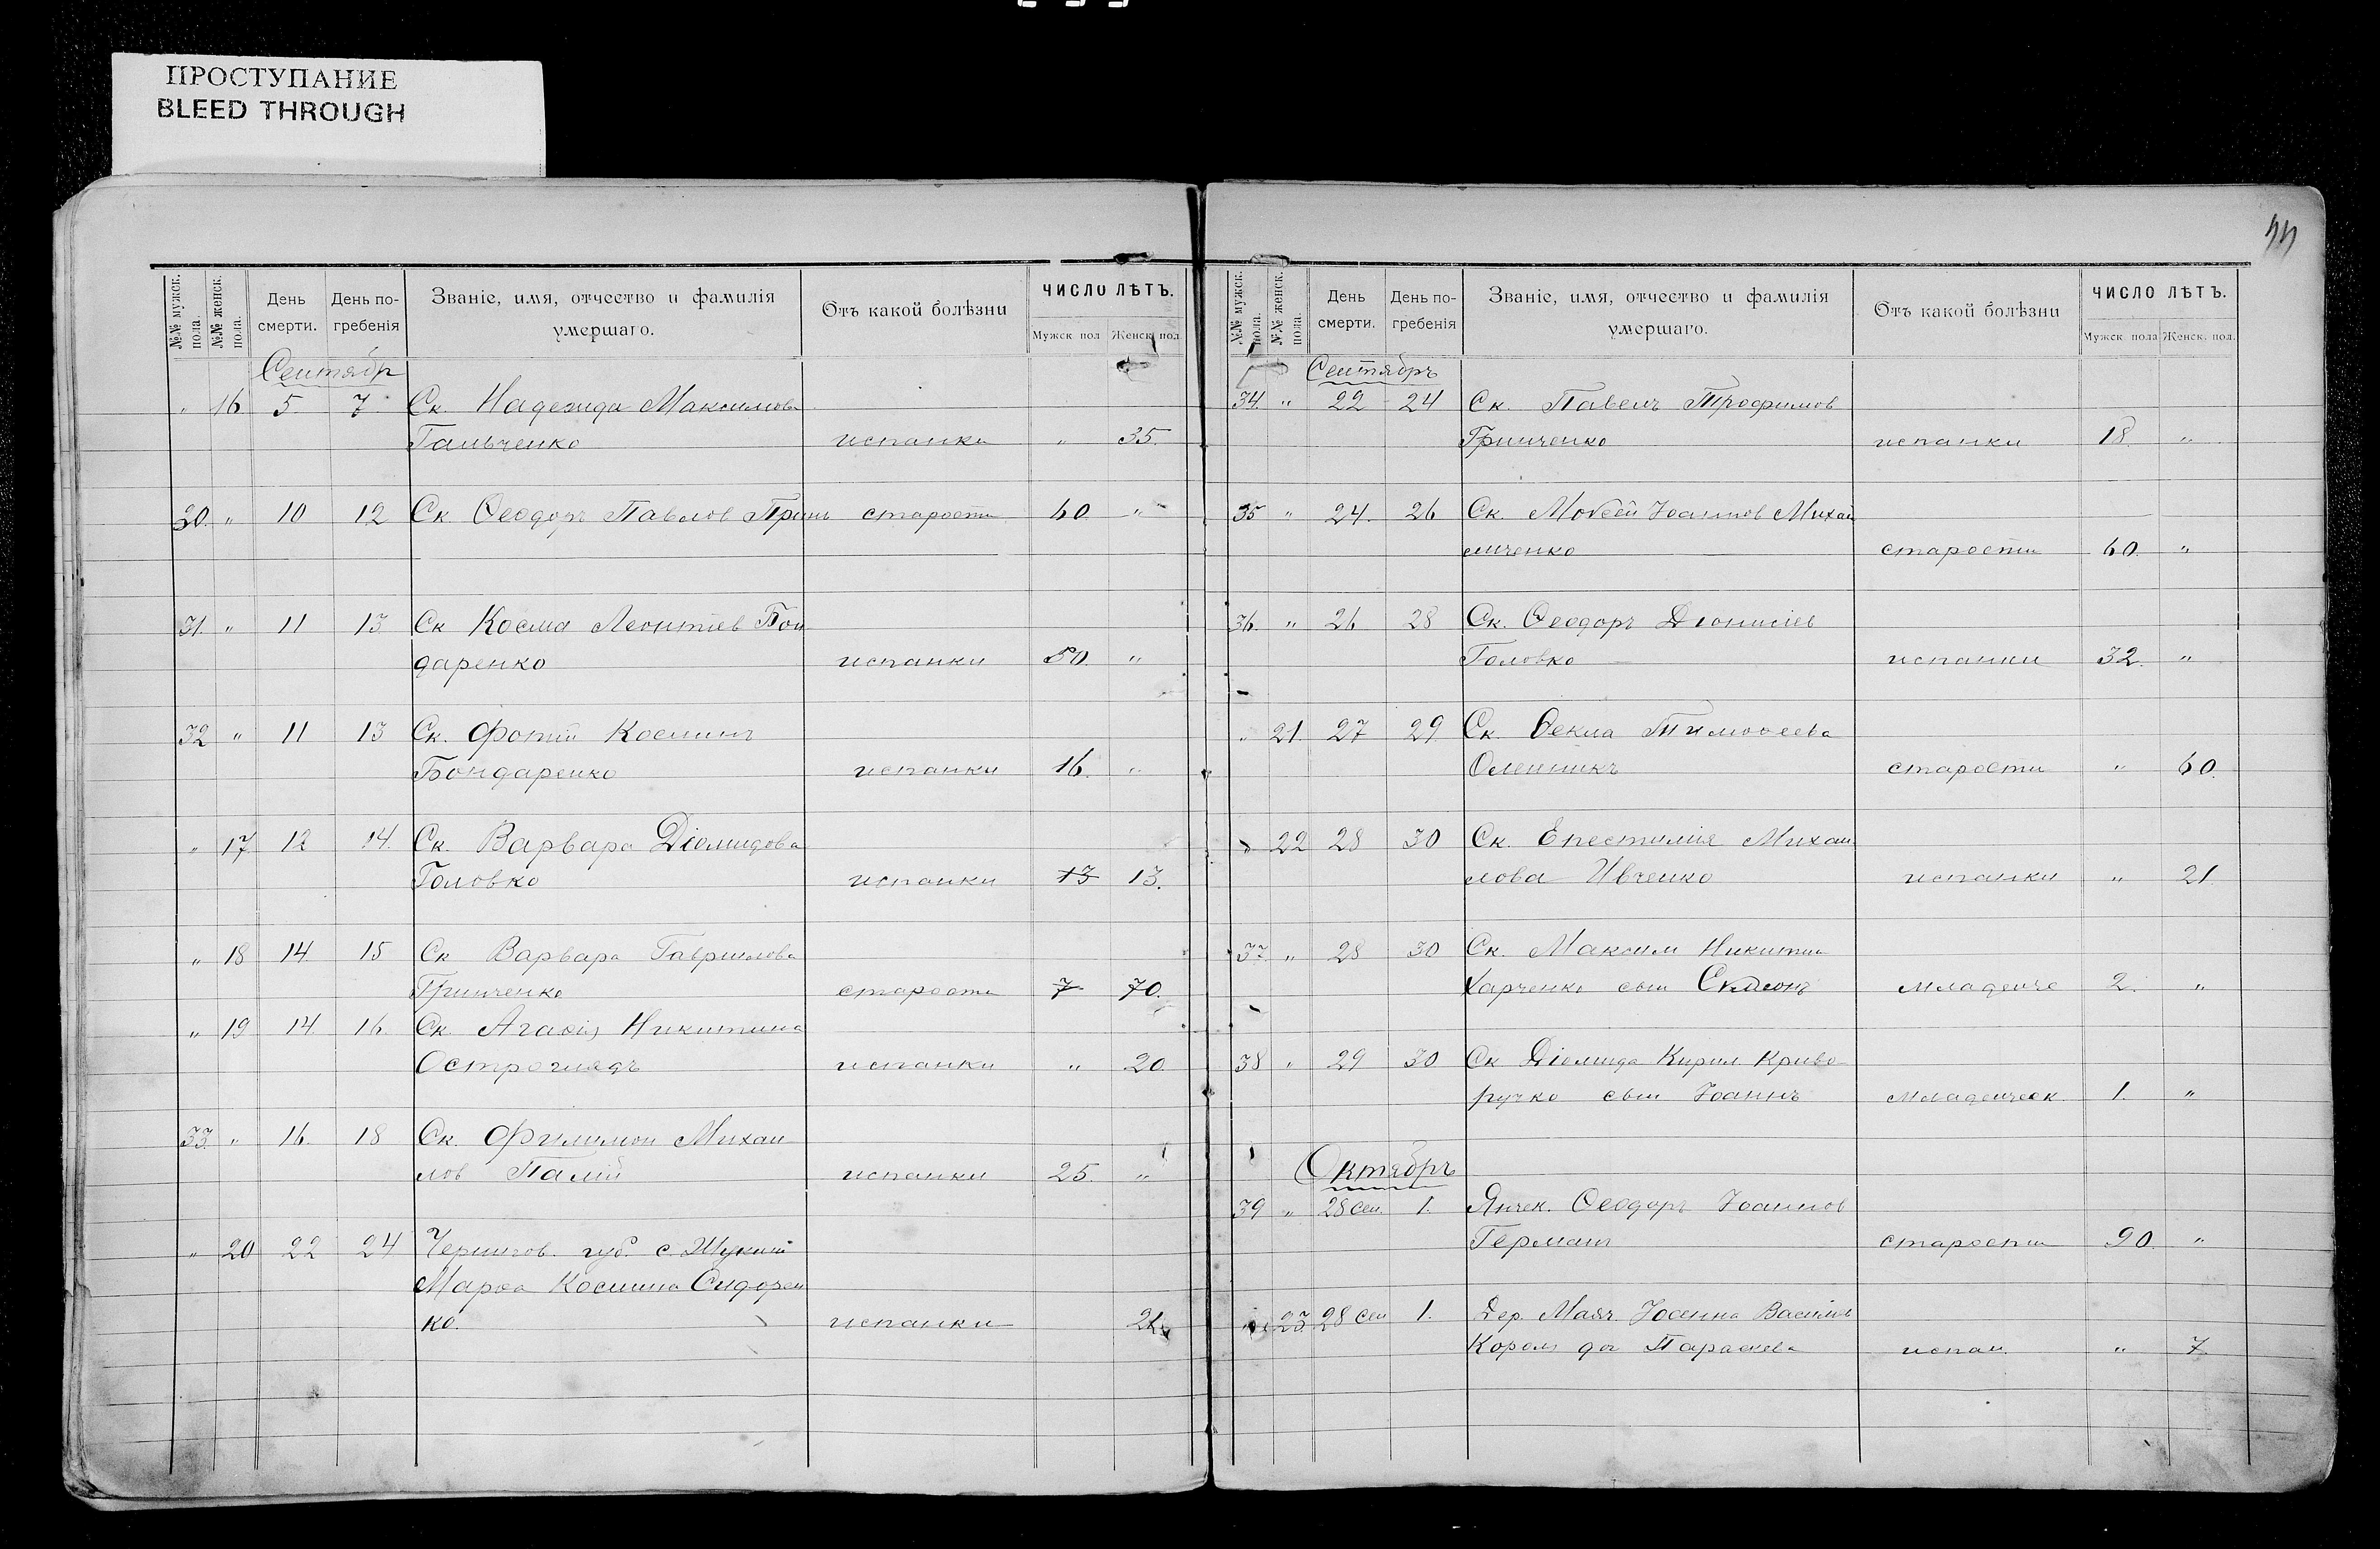 ПРОСТУПАНИЕ
BLEED THROUGH
44
№№ мужск. пола.
№№ женск. пола.
День смерти.
День погребенія
Званіе, имя, отчество и фамилія умершаго.
Отъ какой болѣзни
ЧИСЛО ЛѢТЪ.
Мужск пол Женск. пол.
Сентябр
" 16 5 7 Ск. Надежда Максимова
Гальченко испанки " 35.
30. " 10 12 Ск Ѳеодоръ Павлов старости 60 "
31. " 11 13 Ск Косма Леонтіев Бон
даренко испанки 50. "
32 " 11 13 Ск. Фотій Косминъ
Бондаренко испанки 16. "
" 17 12 14. Ск. Варвара Діомидова
Головко испанки 13 13.
" 18 14 15 Ск Варвара Гаврилова
Гринченко старости 7 70.
" 19 14 16. Ск. Агафія Никитина
Остроглядъ испанки " 20.
33. " 16. 18 Ск. Филимон Михаи
лов Палій испанки 25. "
" 20 22 24 Чернигов. губ. с.
Марѳа Космина Сидорен
ко. испанки
№№ мужск. пола.
№№ женск. пола.
День смерти.
День погребенія
Званіе, имя, отчество и фамилія умершаго.
Отъ какой болѣзни
ЧИСЛО ЛѢТЪ.
Мужск. пола Женск. пол.
Сентябръ
34. " 22 24 Ск. Павелъ Трофимов
Гринченко испанки 18. "
35 " 24. 26 Ск. Моѵсей Іоаннов Михай
личенко старости 60. "
36. " 26 28 Ск. Ѳеодоръ Діонисіев
Головко испанки 32. "
" 21. 27 29 Ск. Ѳекла Тимоѳеева
Олейникъ старости " 60.
" 22 28 30 Ск. Епестимія Михаи
лова Ивченко испанки " 21
37. " 28 30 Ск. Максим Никитин
Харченко сын младенче 2. "
38 " 29 30 Ск Діомида Кирил. Криво
ручко сын Іоаннъ младенческ. 1. "
Октябръ
39 " 28 сен. 1. Янчек. Ѳеодоръ Іоаннов
Германъ старости 90. "
" 23 28 сен 1. Дер. Маяч. Іоанна Василiев
Король доч Параскева испан. " 7.